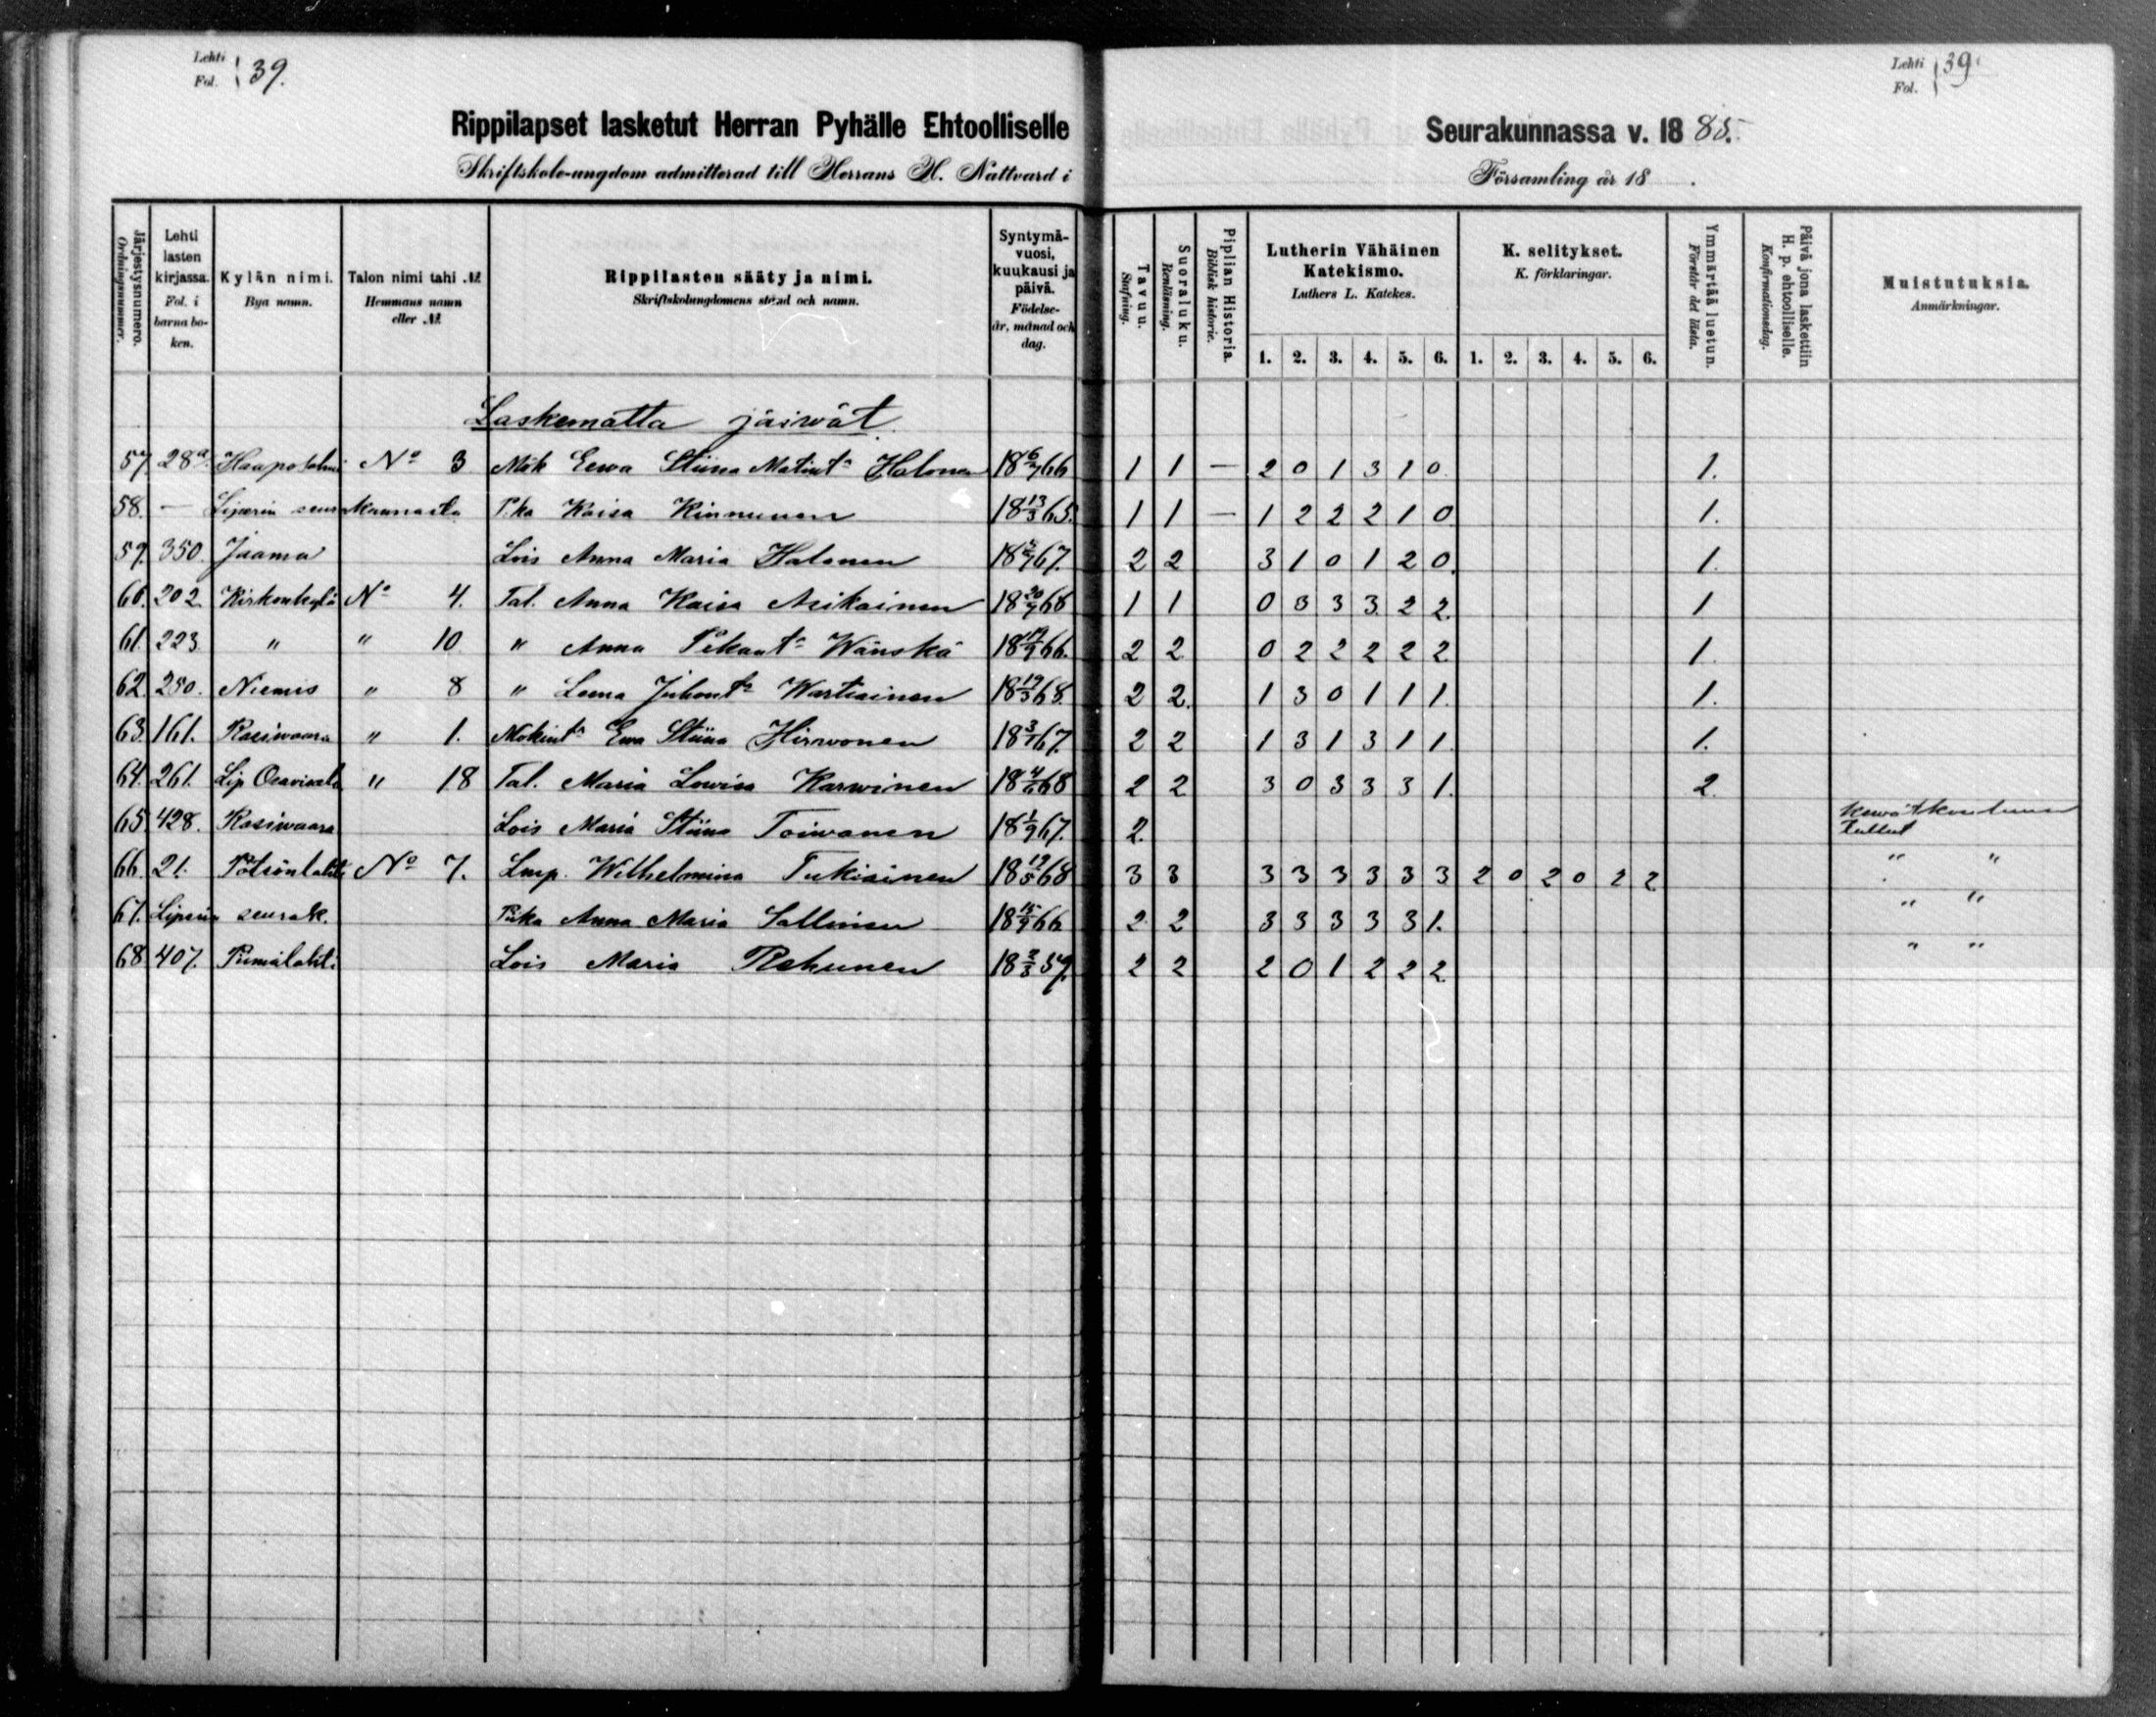 Lehti
Fol. 39.
Lehti
Fol. 39.
Rippilapset lasketut Herran Pyhälle Ehtoolliselle Seurakunnassa v. 18 85.
Skriftskole-ungdom admitterad till Herrans H. Nattvard i Församling år 18 .
Järjestysnumero.
Ordningsnummer.
Lehti lasten kirjassa.
Fol. i barnaboken.
Kylän nimi.
Bya namn.
Talon nimi tahi №
Hemmans namn eller №.
Rippilasten sääty ja nimi.
Skriftskolungdomens stånd och namn.
Syntymävuosi, kuukausi ja päivä.
Födelseår, månad och dag.
Tavuu.
Stafning.
Suoraluku.
Renläsning.
Piplian Historia.
Biblisk historie.
Lutherin Vähäinen Katekismo.
Luthers L. Katekes.
1. 2. 3. 4. 5. 6.
K. selitykset.
K. förklaringar.
1. 2. 3. 4. 5. 6.
Ymmärtää luetun.
Förstår det lästa.
Päivä jona laskettiin H. p. ehtoolliselle.
Konfirmationsdag.
Muistutuksia.
Anmärkningar.
Laskematta jäiwät.
57. 28a. Haaposalmi No 3 Mök Eewa Stiina Matint. Halonen 18 6/7 66 1 1 — 2 0 1 3 1 0. 1.
58. — Liperin seurakunnasta P.ka Kaisa Kinnunen 18 13/3 65. 1 1 — 1 2 2 2 1 0 1.
59. 350. Jaama Lois Anna Maria Halonen 67. 2 2 3 1 0 1 2 0. 1.
60. 202. Kirkonkylä No 4. Tal. Anna Kaisa Asikainen 18 1 1 0 3 3 3. 2 2. 1
61. 223. " " 10 " Anna Pekant. Wänskä 18 66. 2 2 0 2 2 2 2 2 1.
62. 250. Niemis " 8 " Leena Juhont. Wartiainen 18 19/3 68. 2 2. 1 3 0 1 1 1. 1.
63. 161. Rasiwaara " 1. Mökint. Ewa Stiina Hirwonen 18 67. 2 2 1 3 1 3 1 1. 1.
64. 261. Lip. " 18 Tal. Maria Lowisa Karwinen 18 68 2 2 3 0 3 3 3 1. 2.
65. 428. Rasiwaara Lois Maria Stiina Toiwanen 18 1/9 67. 2.
66. 21. Pötsönlahti No 7. Lmp. Wilhelmina Tukiainen 18 68 3 3 3 3 3 3 3 3 2 0 2 0 2 2 " "
67. Liperin seurak. P:ka Anna Maria Sallinen 18 66 2 2 3 3 3 3 3 1. " "
68. 407. Piimälahti Lois Maria Rehunen 18 2 2 2 0 1 2 2 2. " "